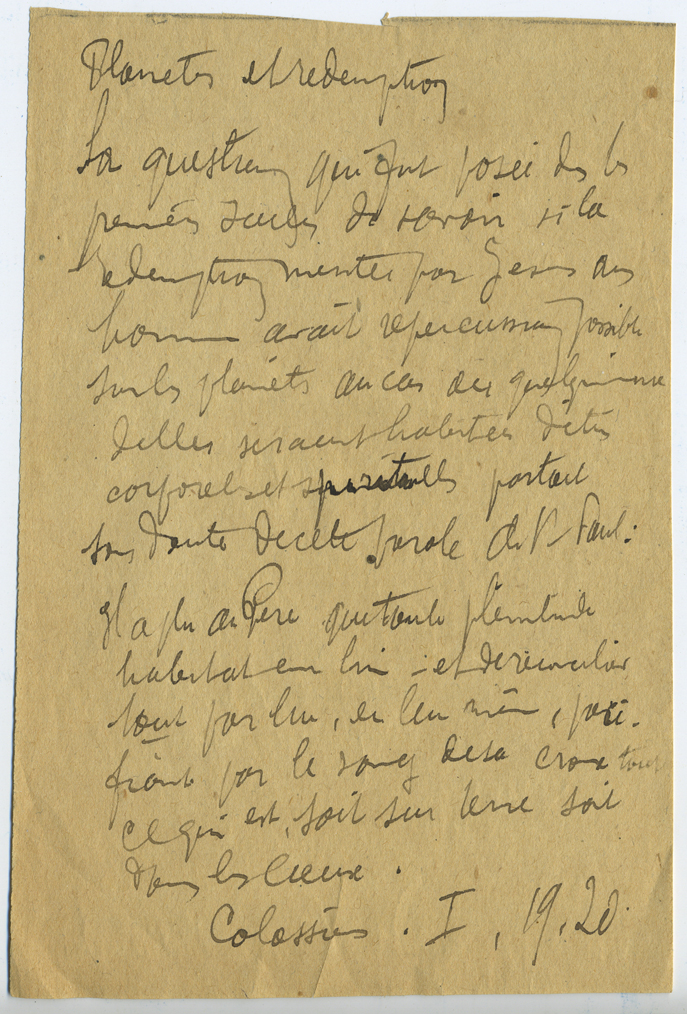 Planetes et redemption
La question qui fut posée dès les
premiers siècles de savoir si la
redemption meritée par Jesus aux
hommes avait repercussion possible
sur les planètes au cas où quelqu'une
d'elles seraient habitées d'êtres
corporels et spirituels partait
sans doute de cette parole de St Paul :
Il a plu au Père que toute plénitude
habitat en lui - et de reconcilier
tout par lui, en lui même, paci-
fiant par le sang de sa croix tout
ce qui est, soit sur terre soit
dans les cieux .
Colossiens . I , 19 . 20